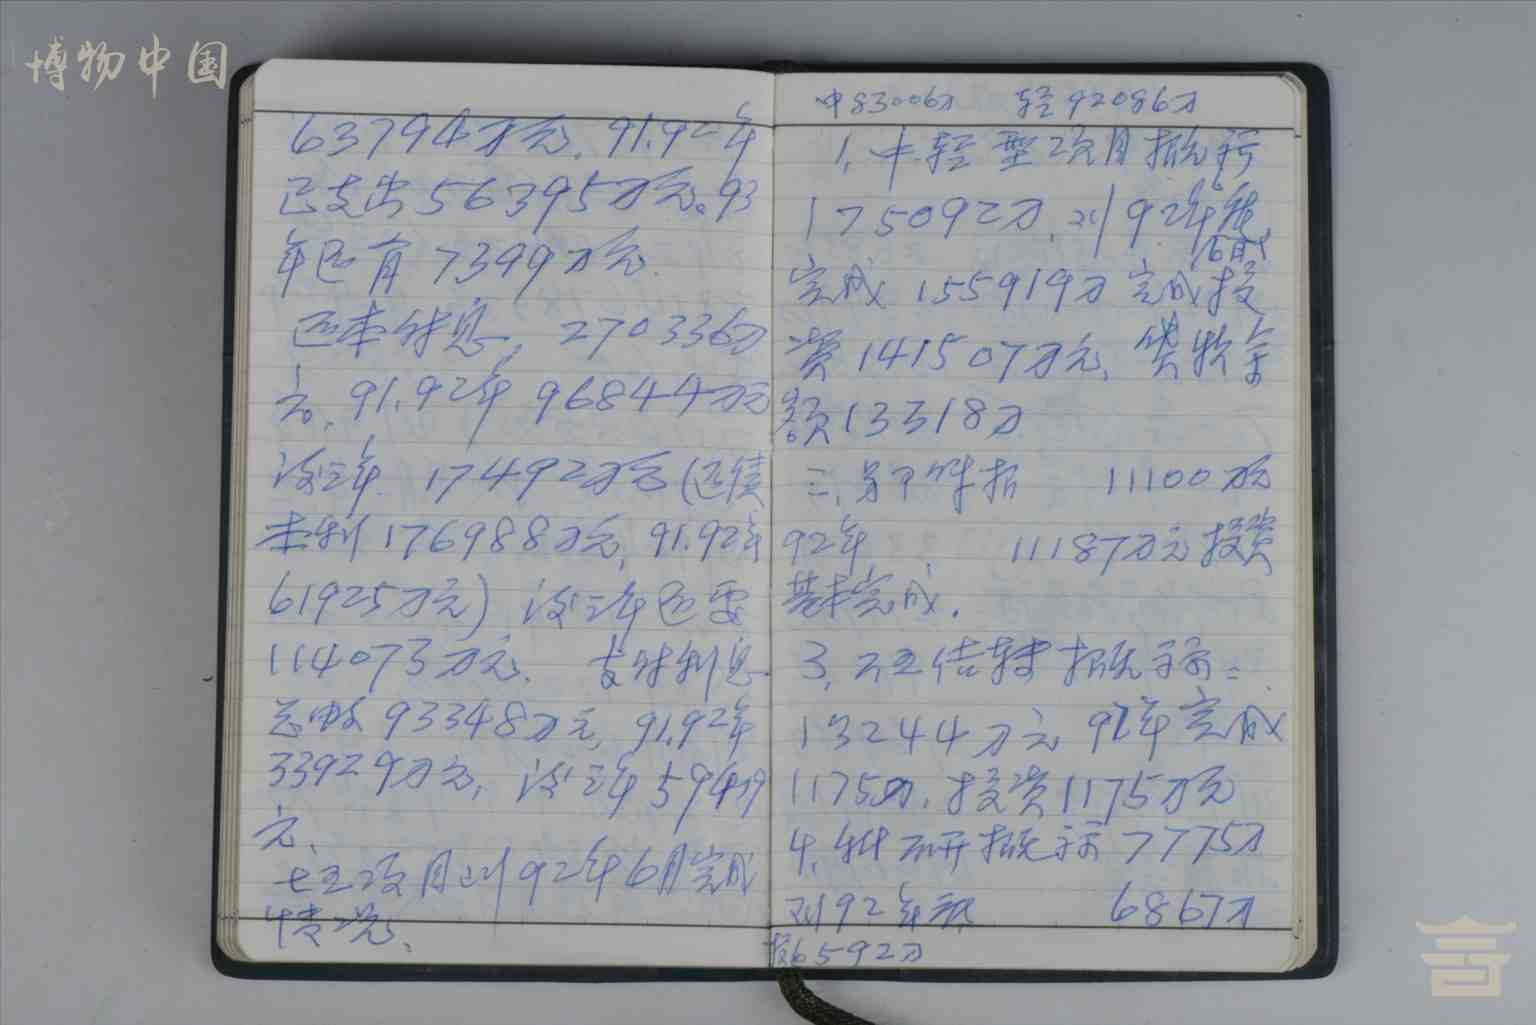 博物中国
63794万元,91.92年
已支出56395万元。93
年还有7399万元.
还本付息,270336万
元,91.92年96844万元
后三年 174920万元(还债
本利176988万元,91.92年
61925万元) 后三年还要
114073万元. 支付利息
93348万元,91.92年
33929万元,后三年59419
元.
七五项目到92年6月完成
情况.
中83006万 轻92086万
1.中.轻型项目概算
175092万,到92年底
6月
完成155919万完成投
资141507万元,贷款金
额13318万
二、 11100万元
92年 11187万元投资
基本完成.
3、六五结转概算:
13244万元 92年完成
1175万,投资1175万元
4.科研概算7775万
到92年底 6867万
投6592万